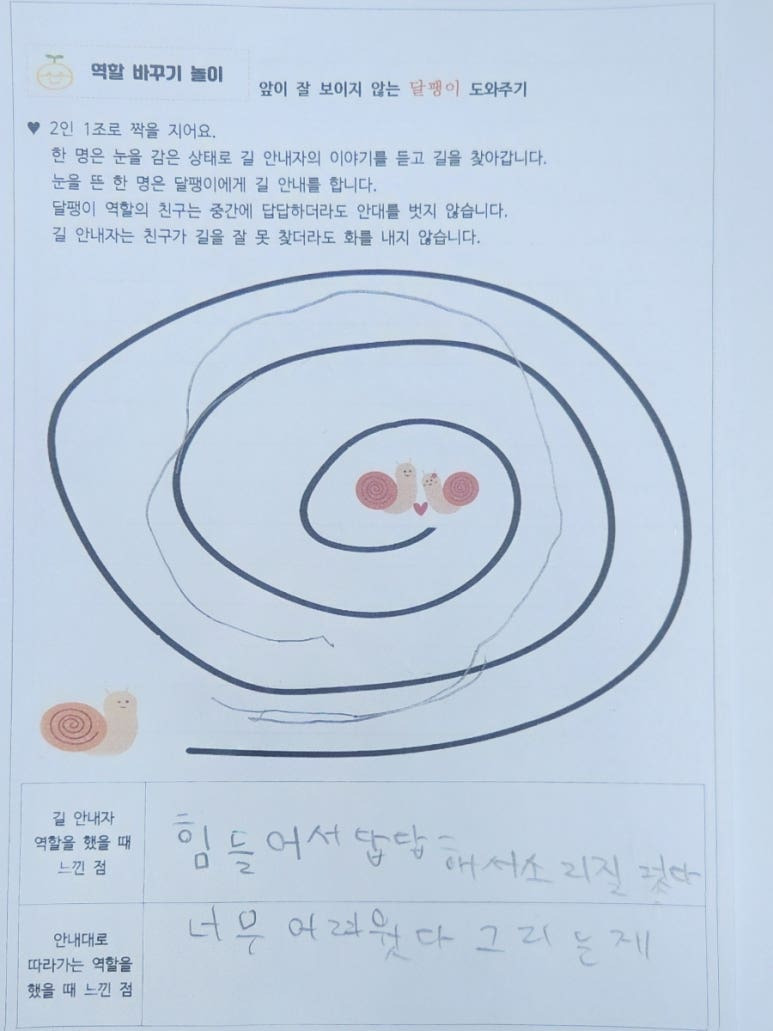 역할 바꾸기 놀이
앞이 잘 보이지 않는 달팽이 도와주기
♥ 2인 1조로 짝을 지어요.
한 명은 눈을 감은 상태로 길 안내자의 이야기를 듣고 길을 찾아갑니다.
눈을 뜬 한 명은 달팽이에게 길 안내를 합니다.
달팽이 역할의 친구는 중간에 답답하더라도 안대를 벗지 않습니다.
길 안내자는 친구가 길을 잘 못 찾더라도 화를 내지 않습니다.
길 안내자
역할을 했을 때
느낀 점
힘들어서 답답해서소리질렀다
안내대로
따라가는 역할을
했을 때 느낀 점
너무 어려웠다 그리는제